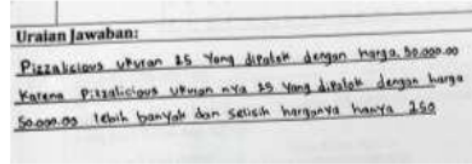 Uraian Jawaban:
Pizzalicious ukuran 25 Yang dipalak dengan harga. 50.000.00
Karena Pizzalicious ukuran nya 25 Yang dipalak dengan harga
50.000.00 lebih banyak dan selisih harganya hanya 250